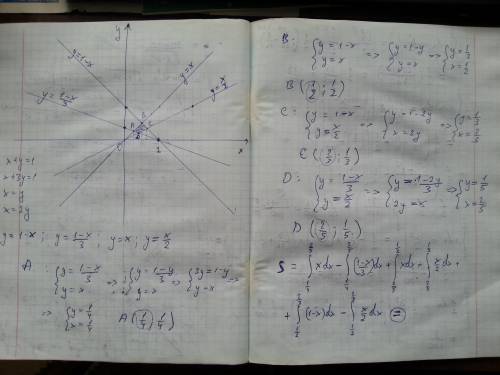 y
y=1-x
y=x
y=x/2
y=(1-x)/3
A
B
C
D
1
x
x+y=1
x+3y=1
x=y
x=2y
y=1-x ; y=(1-x)/3 ; y=x ; y=x/2
A: {y=(1-x)/3, y=x => {y=(1-y)/3, y=x => {3y=1-y, y=x =>
=> {y=1/4, x=1/4 A(1/4; 1/4)
B: {y=1-x, y=x => {y=1-y, y=x => {y=1/2, x=1/2
B(1/2; 1/2)
C: {y=1-x, y=x/2 => {y=1-2y, x=2y => {y=1/3, x=2/3
C(2/3; 1/3)
D: {y=(1-x)/3, y=x/2 => {y=(1-2y)/3, 2y=x => {y=1/5, x=2/5
D(2/5; 1/5)
S = ∫ xdx - ∫ ((1-x)/3)dx + ∫ xdx - ∫ x/2 dx +
+ ∫ (1-x)dx - ∫ x/2 dx =